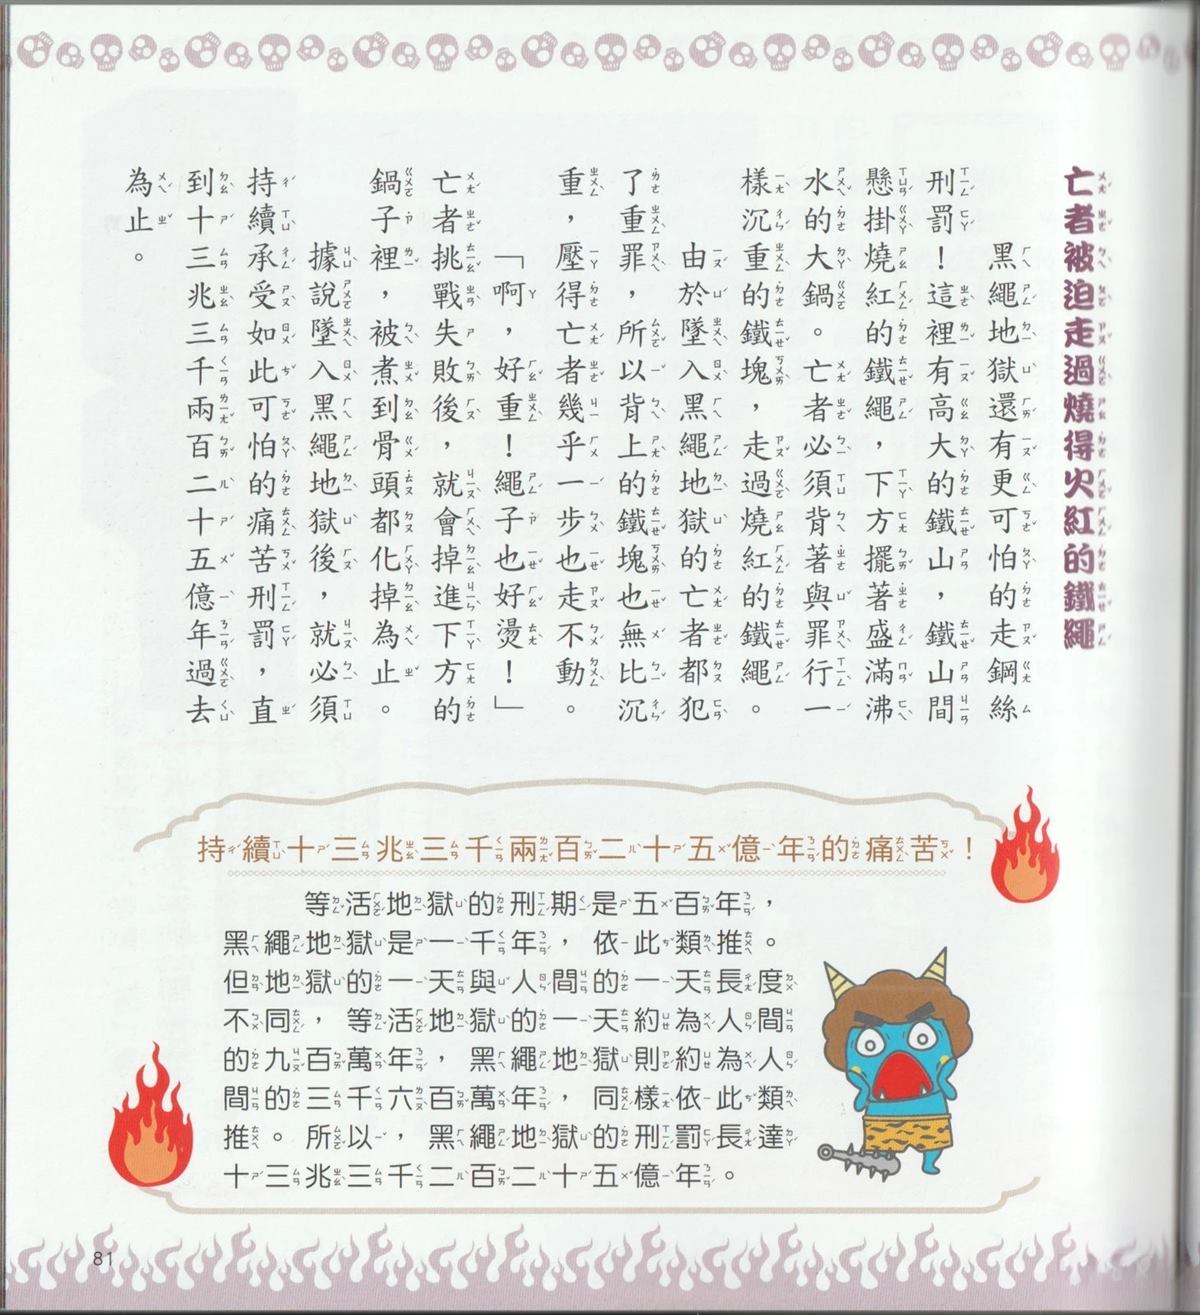 亡者被迫走過燒得火紅的鐵繩
黑繩地獄還有更可怕的走鋼絲
刑罰！這裡有高大的鐵山，鐵山間
懸掛燒紅的鐵繩，下方擺著盛滿沸
水的大鍋。亡者必須背著與罪行一
樣沉重的鐵塊，走過燒紅的鐵繩。
由於墜入黑繩地獄的亡者都犯
了重罪，所以背上的鐵塊也無比沉
重，壓得亡者幾乎一步也走不動。
「啊，好重！繩子也好燙！」
亡者挑戰失敗後，就會掉進下方的
鍋子裡，被煮到骨頭都化掉為止。
據說墜入黑繩地獄後，就必須
持續承受如此可怕的痛苦刑罰，直
到十三兆三千兩百二十五億年過去
為止。
持續十三兆三千兩百二十五億年的痛苦！
等活地獄的刑期是五百年，
黑繩地獄是一千年，依此類推。
但地獄的一天與人間的一天長度
不同，等活地獄的一天約為人間
的九百萬年，黑繩地獄則約為人
間的三千六百萬年，同樣依此類
推。所以，黑繩地獄的刑罰長達
十三兆三千二百二十五億年。
81